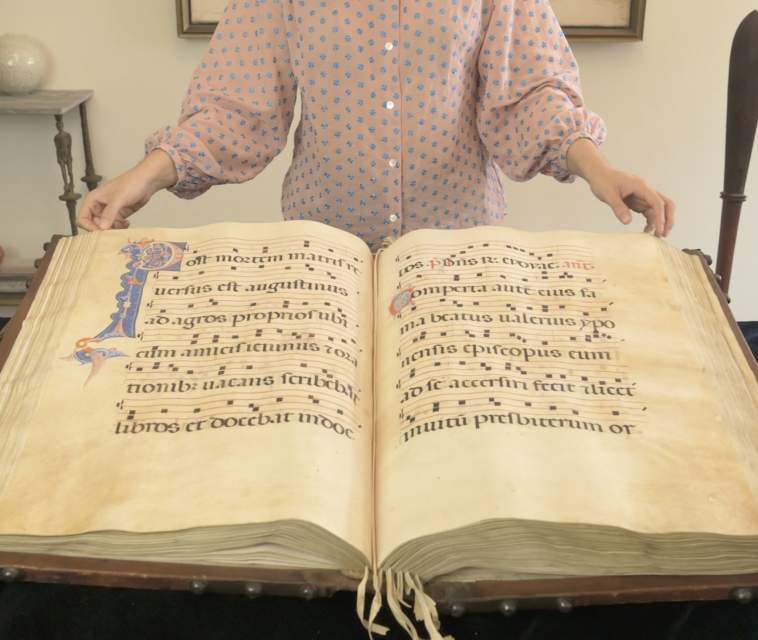 Post mortem matris re
uersus est augustinus
ad agros proprios ubi
cum amicis ieiuniis 7 ora
tionibꝫ uacans scribebat
libros et docebat indoc
tos. ant.
Comperta autē eius fa
ma beatus ualerius ypo
nensis episcopus eum
ad se accersiri fecit 7
inuitū presbiterum or